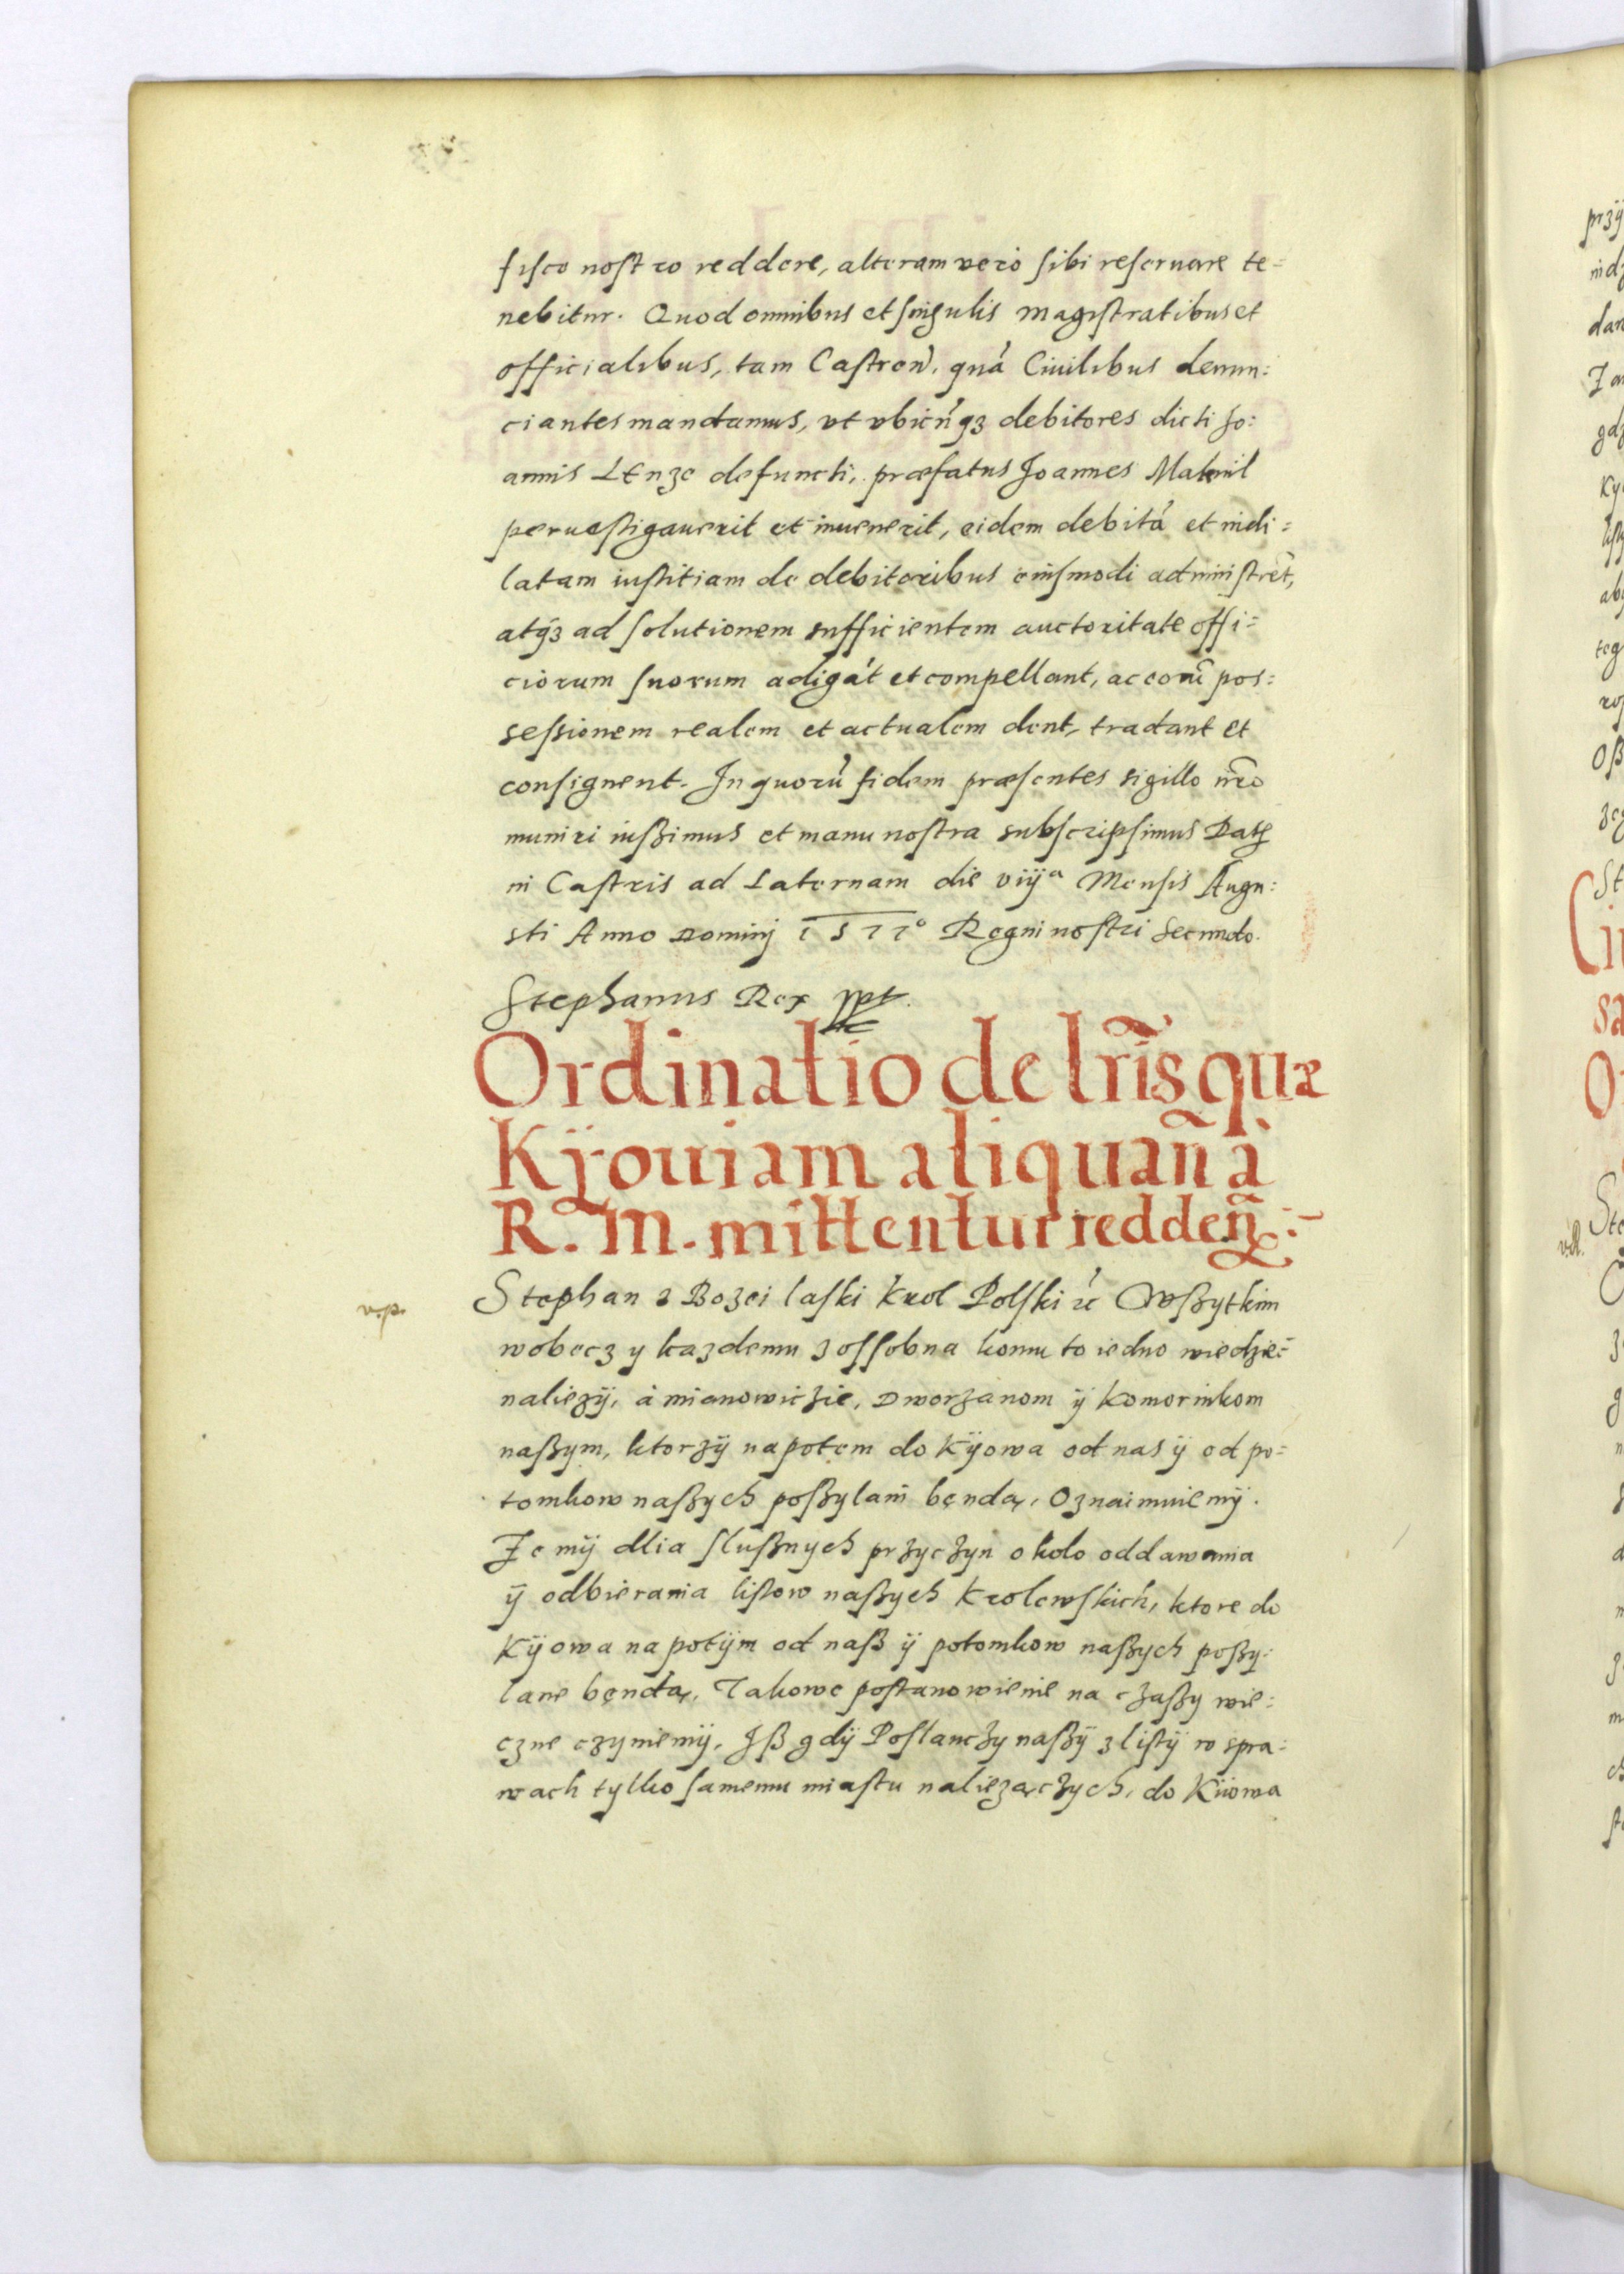 fisco nostro reddere, alteram vero sibi reseruare te=
nebitur. Quod omnibus et singulis Magistratibus et
officialibus, tam Castren̄. quā Ciuilibus denun:
ciantes mandamus, vt vbicūq3 debitores dicti Jo:
annis LEnze defuncti, præfatus Joannes
peruestigauerit et inuenerit, eidem debitā et indi=
latam iustitiam de debitoribus eiusmodi administrēt,
atq3 ad solutionem sufficientem auctoritate offi=
ciorum suorum adigāt et compellant, ac eorū pos:
seßionem realem et actualem dent, tradant et
consignent. In quorū fidem præsentes sigillo nr̄o
muniri iußimus et manu nostra subscripsimus Datꝫ
in Castris ad Laternam die viijᵃ Mensis Augu:
sti Anno Dominj 1577° Regni nostri Secundo.
Stephanus Rex ppt.
Ordinatio de lr̄is quæ
Kÿouiam aliquan̄ à
R. M. mittentur redden̄.
v.p.
Stephan z Bozei laski Krol Polski ꝛc Wßytkim
wobecz y kazdemu z ossobna komu to iedno wiedzieć
nalieży, à mianowiczie, Dworzanom ÿ Komornikom
naßym, ktorzÿ napotem do Kÿowa od nas ÿ od po=
tomkow naßych poßylani bęndą, Oznaimuiemÿ.
Ze mÿ dlia slußnych przyczyn około oddawania
ÿ odbierania listow naßych Krolewskich, ktore do
Kÿowa napotÿm od naß ÿ potomkow naßych poßy:
lane bęndą, Takowe postanowienie na czaßy wie:
czne czyniemÿ, Iß gdÿ Poslanczy naßÿ z listÿ w spra:
wach tylko samemu miastu naliezączych, do Kÿowa